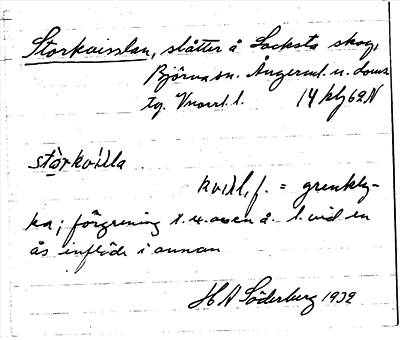 Storkvisslan, slåtter å Locksta skog,
Björna sn. Ångerml. n. doms.
tg. Vnorrl. l. 14 kbg 62 N
storkvilla
kvisl, f. = grenkly-
ka; förgrening t. ex. av en å. l. vid en
ås inflöde i annan
H A Söderberg 1932